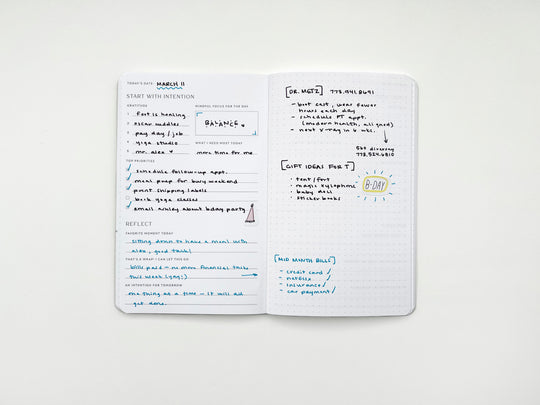 TODAY'S DATE: MARCH 11
START WITH INTENTION
GRATITUDE
foot is healing
oscar cuddles
pay day / job
yoga studio
mr. alex
MINDFUL FOCUS FOR THE DAY
BALANCE
WHAT I NEED MOST TODAY
more time for me
TOP PRIORITIES
schedule follow-up appt.
meal prep for busy weekend
print shipping labels
book yoga classes
email ashley about bday party
REFLECT
FAVORITE MOMENT TODAY
sitting down to have a meal with
alex, good talk!
THAT'S A WRAP! I CAN LET THIS GO
bills paid - no more financial talk
this week (yay!)
AN INTENTION FOR TOMORROW
one thing at a time - it will all
get done.
[DR. METZ] 773.841.8691
- boot cast, wear fewer
hours each day
- schedule PT appt.
(modern health, all good)
- next x-ray in 6 wks.
773.524.6810
[GIFT IDEAS FOR T]
• tent/fort
• magic xylophone
• baby doll
• sticker books
B-DAY
[MID MONTH BILLS]
- credit card ✓
- netflix ✓
- insurance ✓
- car payment ✓